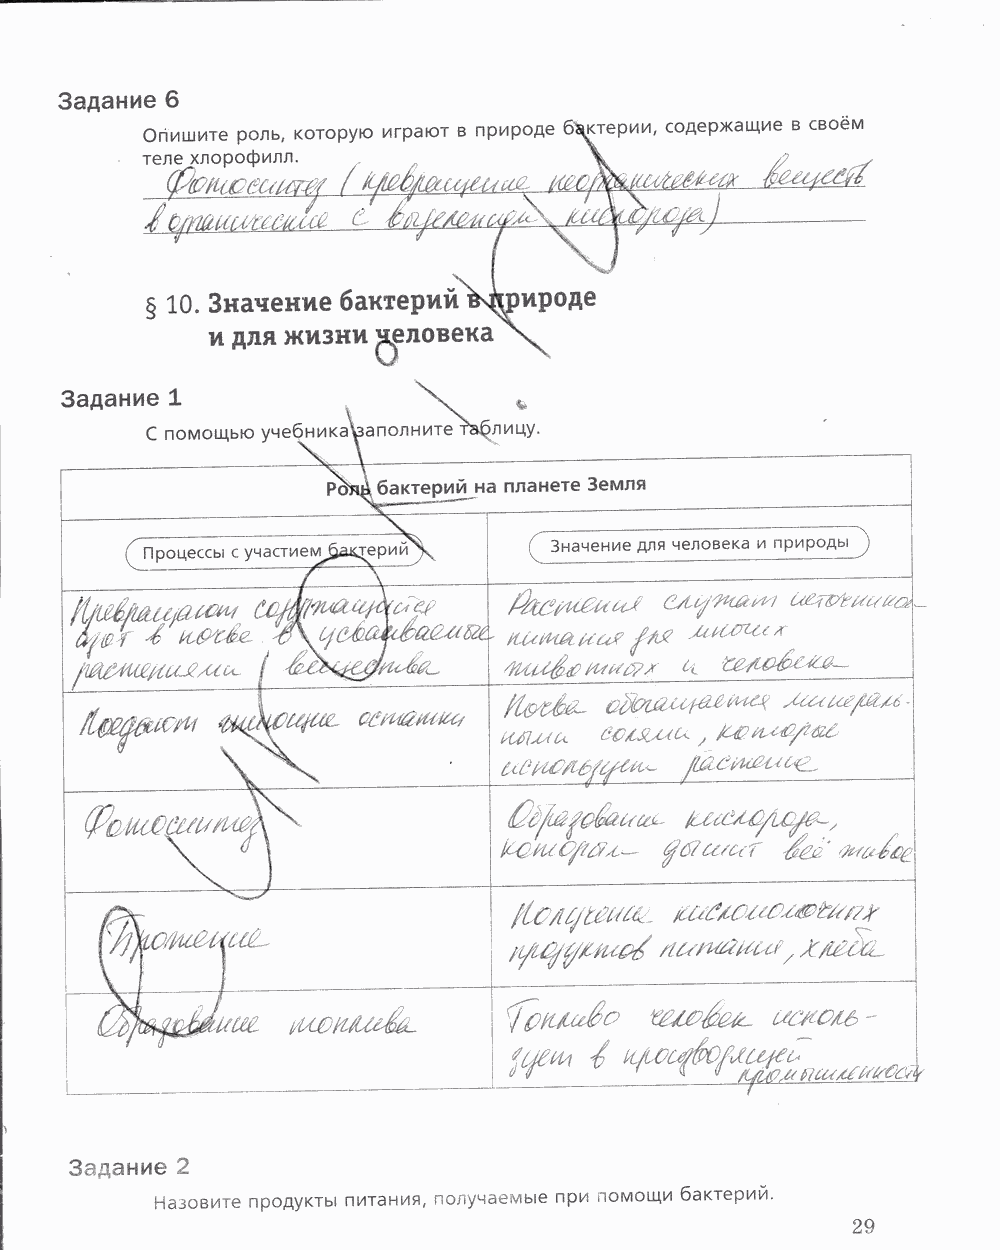 Задание 6
Опишите роль, которую играют в природе бактерии, содержащие в своём
теле хлорофилл.
Фотосинтез (превращение неорганических веществ
в органические с выделением кислорода)
§ 10. Значение бактерий в природе
и для жизни человека
Задание 1
С помощью учебника заполните таблицу.
Роль бактерий на планете Земля
Процессы с участием бактерий
Значение для человека и природы
Превращают содержащийся
азот в почве в усваиваемые
растениями вещества
Растения служат источником
питания для многих
животных и человека
Поедают гниющие остатки
Почва обогащается минераль-
ными солями, которые
использует растение
Фотосинтез
Образование кислорода,
которым дышит всё живое
Брожение
Получение кисломолочных
продуктов питания, хлеба
Образование топлива
Топливо человек исполь-
зует в производящей
промышленности
Задание 2
Назовите продукты питания, получаемые при помощи бактерий.
29